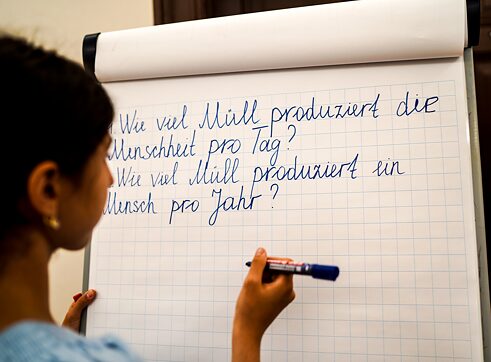 Wie viel Müll produziert die
Menschheit pro Tag?
Wie viel Müll produziert ein
Mensch pro Jahr?